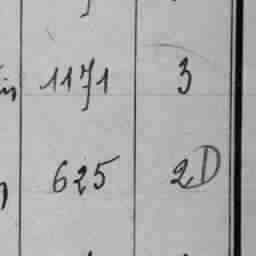 1171 3
625 2D